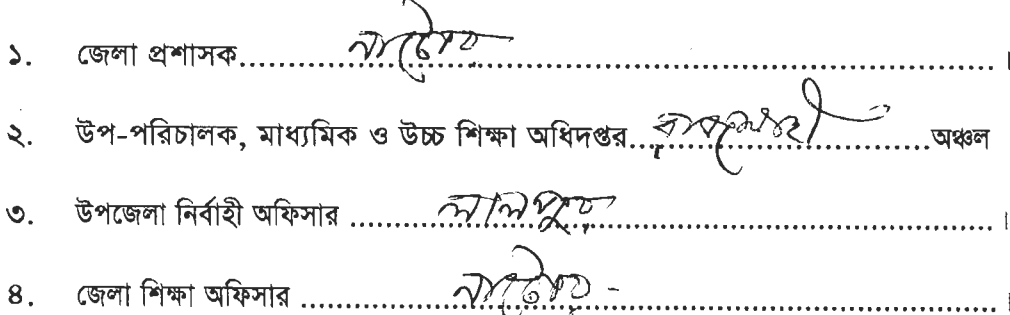 ১. জেলা প্রশাসক.......নাটোর.......।
২. উপ-পরিচালক, মাধ্যমিক ও উচ্চ শিক্ষা অধিদপ্তর..রাজশাহী.......অঞ্চল
৩. উপজেলা নির্বাহী অফিসার .......লালপুর.......।
৪. জেলা শিক্ষা অফিসার .......নাটোর.......।